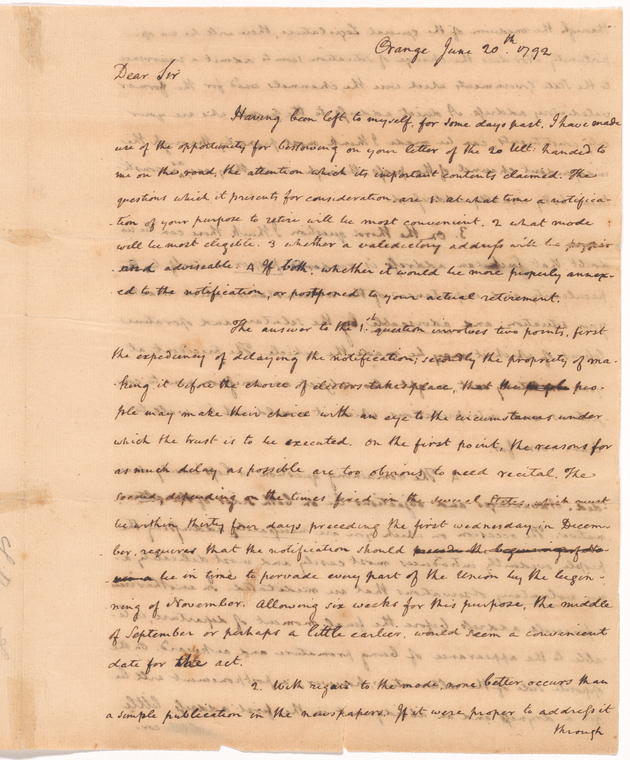 Orange June 20.th 1792
Dear Sir
Having been left to myself, for some days past, I have made
use of the opportunity for bestowing on your letter of the 20 Ult: handed to
me on the road, the attention which its important contents claimed. The
questions which it presents for consideration, are 1. at what time a notifica-
-tion of your purpose to retire will be most convenient. 2 what mode
will be most eligible. 3 whether a valedictory address will be
and adviseable. 4 If both, whether it would be more properly annex-
-ed to the notification, or postponed to your actual retirement.
The answer to the 1st question involves two points, first
the expediency of delaying the notification; secondly the propriety of ma-
-king it before the choice of electors takes place, that the people peo-
ple may make their choice with an eye to the circumstances under
which the trust is to be executed. On the first point, the reasons for
as much delay as possible are too obvious to need recital. The
second, depending on the times fixed in the several States, which must
be within thirty four days preceding the first wednesday in Decem-
ber, requires that the notification should precede the beginning of No-
be in time to pervade every part of the Union by the begin-
ning of November. Allowing six weeks for this purpose, the middle
of September or perhaps a little earlier, would seem a convenient
date for the act.
2. With regard to the mode, none better occurs than
a simple publication in the newspapers. If it were proper to address it
through